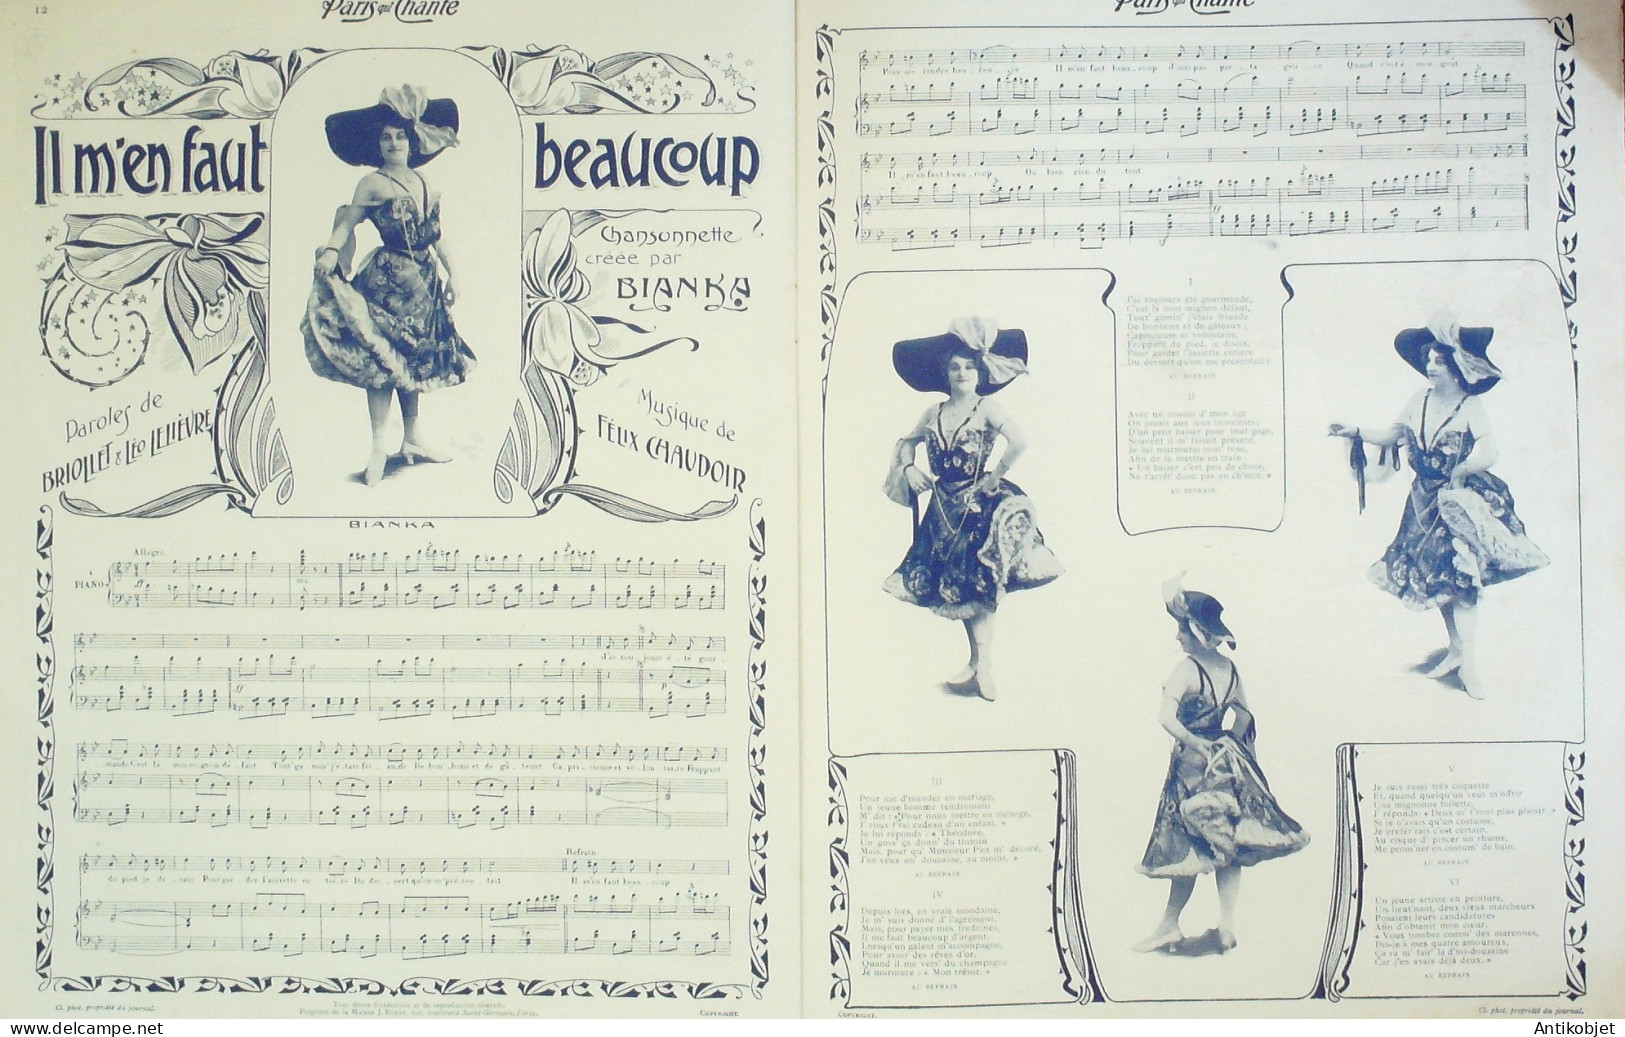 12
Paris qui Chante
Il m'en faut beaucoup
Chansonnette
créée par
BIANKA
Paroles de
BRIOLLET & Léo LELIÈVRE
Musique de
FÉLIX CHAUDOIR
BIANKA
Allegro.
PIANO
J'ai tou_jours é_té gour_
mande C'est là mon mignon dé_faut Tout' ga_min' j'é_tais fri_ande De bon_bons et de gâ_teaux Ca_pri_cieuse et vo_lon_tai_re Frappant
du pied je di_sais Pour gar_der l'assiette en_tiè_re Du des_sert qu'on m'pré_sen_tait Il m'en faut beau_coup
Refrain.
Tous droits d'exécution et de reproduction réservés.
Cl. phot. propriété du journal.
COPYRIGHT.
Paris qui Chante
Pour me rendre heu_reu_se Il m'en faut beau_coup J'suis pas par_ta_geu_se Quand c'est à mon goût
Il m'en faut beau_coup Ou bien rien du tout
I
J'ai toujours été gourmande,
C'est là mon mignon défaut,
Tout' gamin' j'étais friande
De bonbons et de gâteaux ;
Capricieuse et volontaire,
Frappant du pied, je disais,
Pour garder l'assiette entière
Du dessert qu'on me présentait :
AU REFRAIN
II
Avec un cousin d' mon âge
On jouait aux jeux innocents;
D'un petit baiser pour tout gage,
Souvent il m' faisait présent.
Je lui murmurai tout' rose,
Afin de le mettre en train :
« Un baiser c'est peu de chose,
Ne t'arrêt' donc pas en ch'min. »
AU REFRAIN
III
Pour me d'mander en mariage,
Un jeune homme tendrement
M' dit : « Pour nous mettre en ménage,
J' vous f'rai cadeau d'un enfant. »
Je lui réponds : « Théodore,
Un goss' ça donn' du tintoin
Mais, pour qu' Monsieur Piot m' décore,
J'en veux un' douzaine, au moins. »
AU REFRAIN
IV
Depuis lors, en vraie mondaine,
Je m' suis donné d' l'agrément,
Mais, pour payer mes fredaines,
Il me faut beaucoup d'argent.
Lorsqu'un galant m'accompagne,
Pour avoir des rêves d'or,
Quand il me vers' du champagne
Je murmure : « Mon trésor. »
AU REFRAIN
V
Je suis aussi très coquette
Et, quand quelqu'un veut m'offrir
Une mignonne toilette,
J' réponds: « Deux m' f'ront plus plaisir. »
Si je n'avais qu'un costume,
Je préfer'rais c'est certain,
Au risque d' pincer un rhume,
Me prom'ner en costum' de bain.
AU REFRAIN
VI
Un jeune artiste en peinture,
Un lieut'nant, deux vieux marcheurs
Posaient leurs candidatures
Afin d'obtenir mon cœur.
« Vous tombez comm' des marconnes,
Dis-je à mes quatre amoureux,
Ça va m' fair' la d'mi-douzaine
Car j'en avais déjà deux. »
AU REFRAIN
COPYRIGHT.
Cl. phot. propriété du journal.
Antikobjet